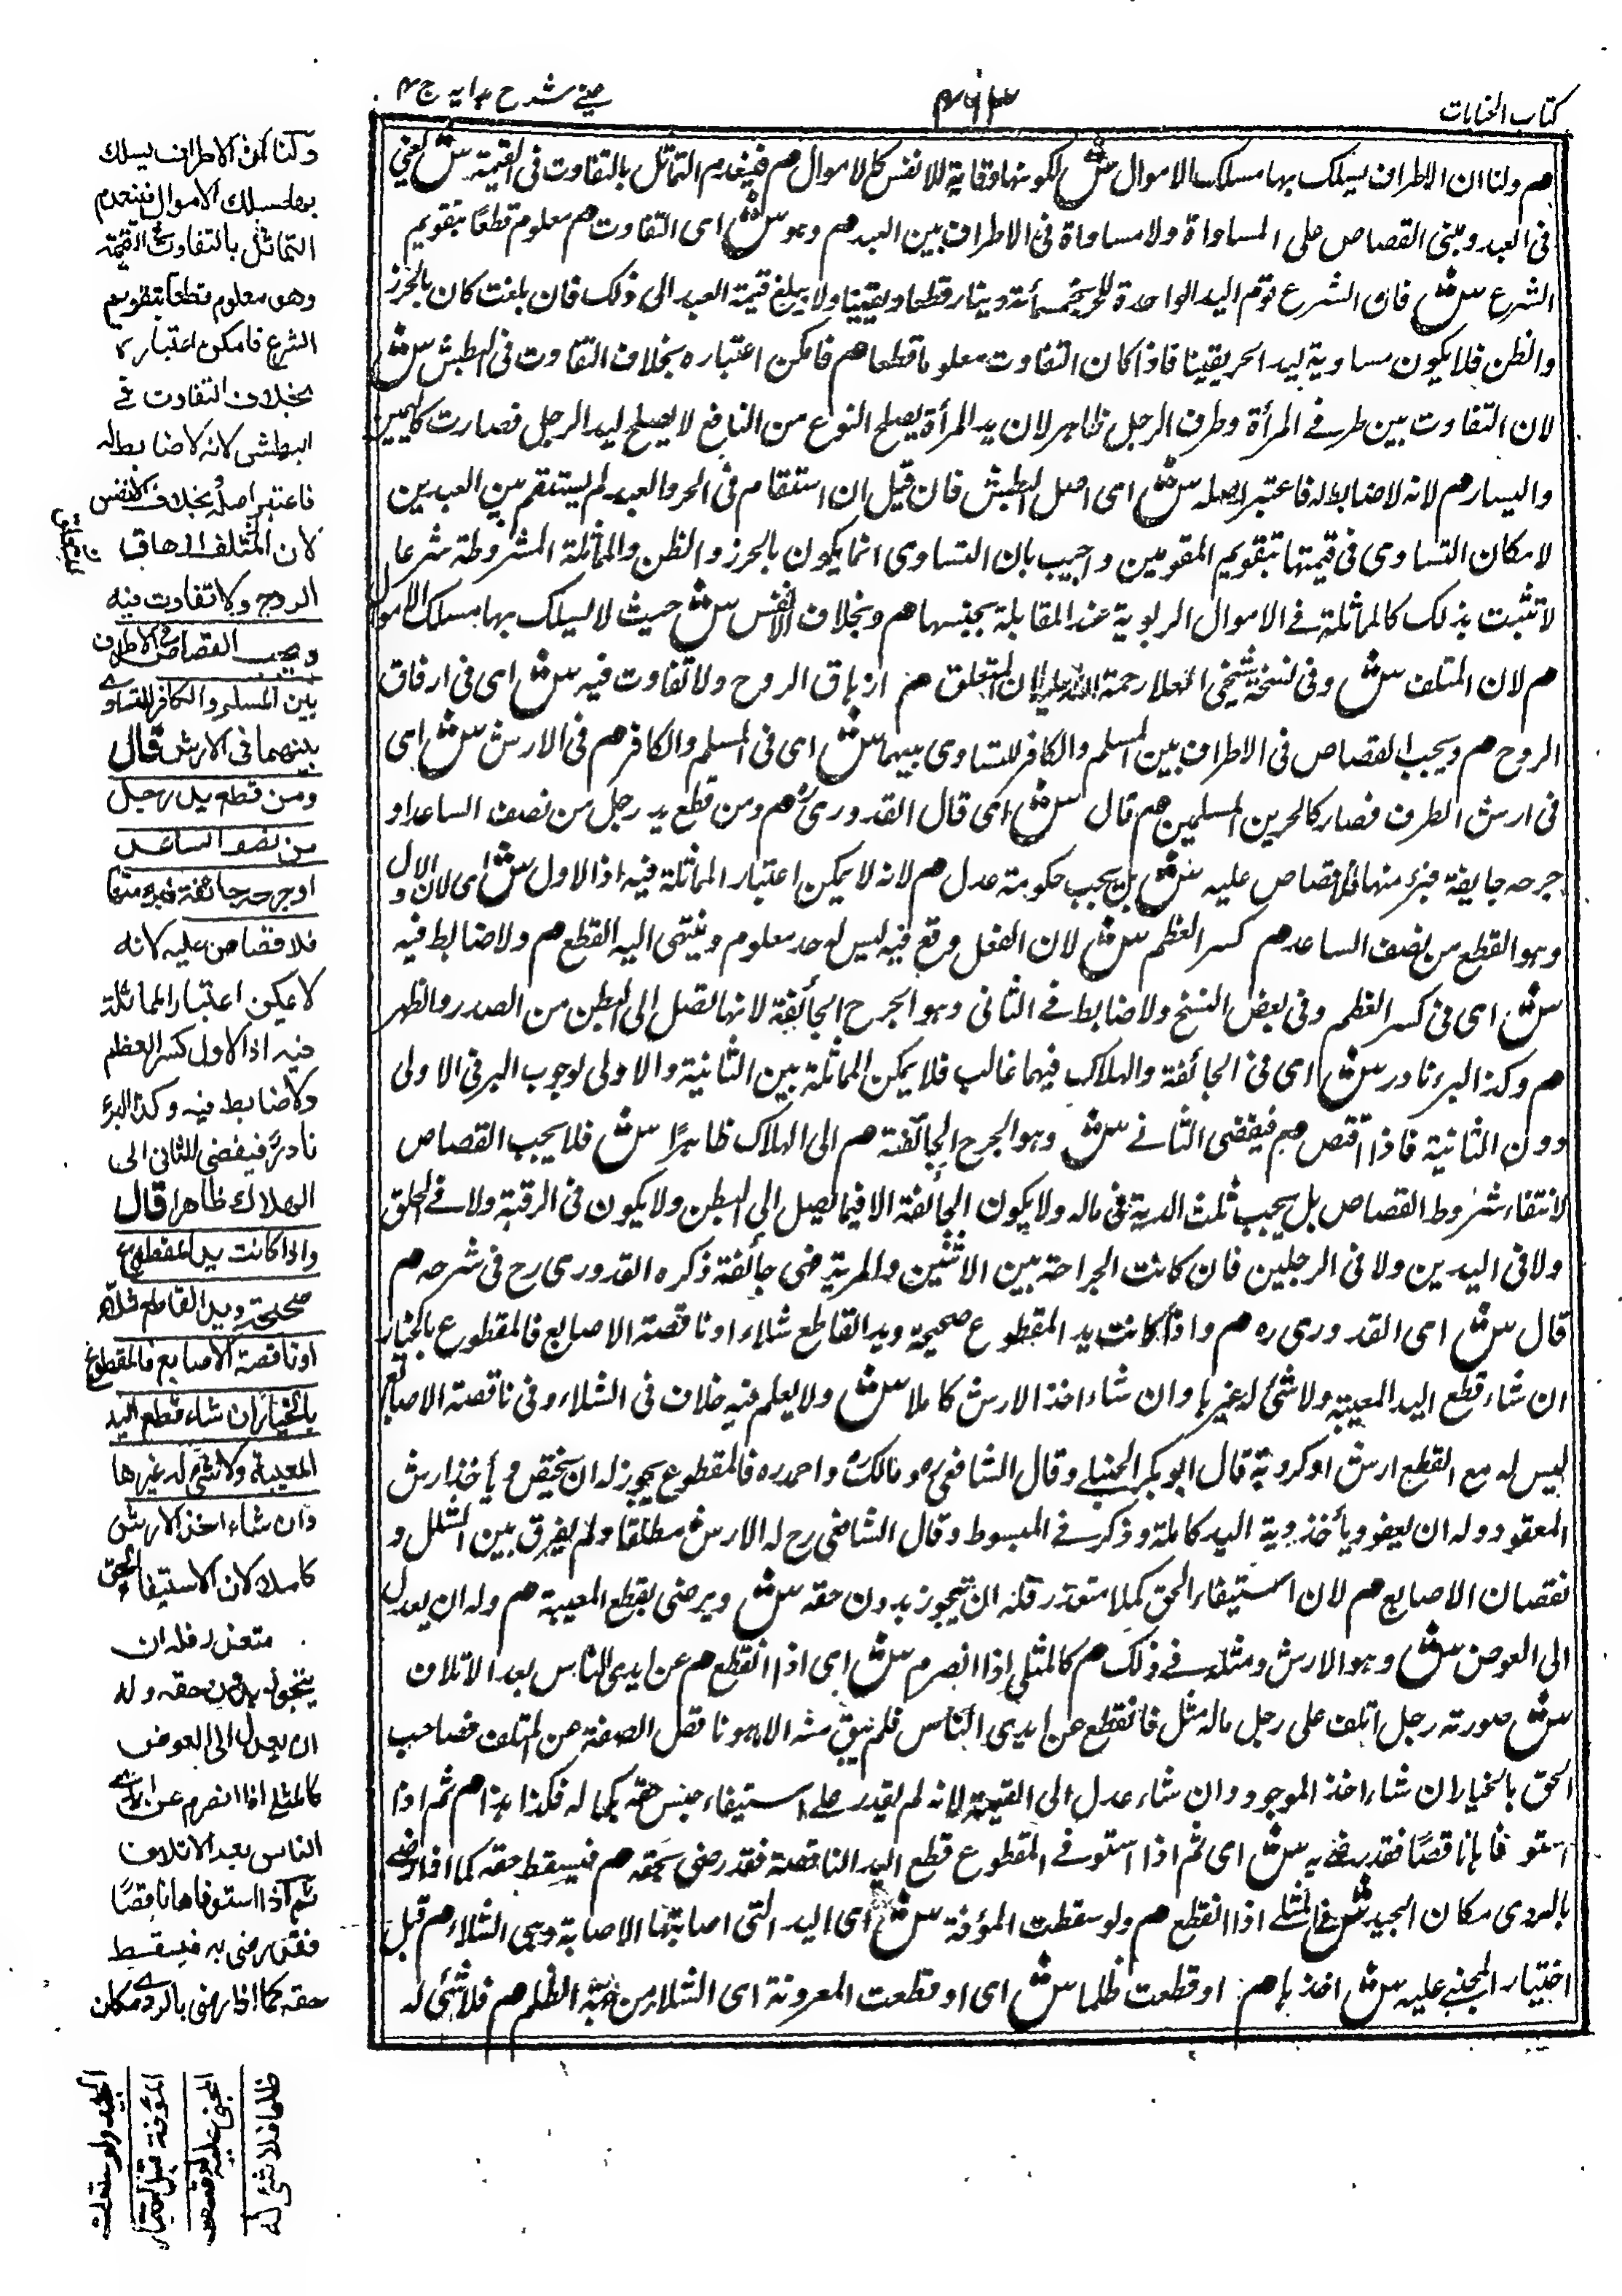 كتاب الجنايات
٤٦٣
عيني شرح هداية ج ٤
هم ولنا ان الاطراف يسلك بها مسلك الاموال ش لكونها وقاية للانفس كالاموال هم فينعدم التماثل بالتفاوت فى القيمة ش يعني
فى العبد ومبنى القصاص على المساواة ولا مساواة فى الاطراف بين العبد هم وهو ش اى التفاوت هم معلوم قطعا بتقويم
الشرع ش فان الشرع قوم اليد الواحدة للحر بخمسمائة دينار قطعا ويقينا ولا يبلغ قيمة العبد الى ذلك فان بلغت كان بالحرز
والظن فلا يكون مساوية ليد الحر يقينا فاذا كان التفاوت معلوما قطعا هم فامكن اعتباره بخلاف التفاوت فى البطش ش
لان التفاوت بين طرفے المرأة وطرف الرجل ظاهر لان يد المرأة يصلح النوع من المنافع لا يصلح ليد الرجل فصارت كاليمين
واليسار هم لانه لا ضابط له فاعتبر اصله ش اى اصل البطش فان قيل ان استقام فى الحر والعبد لم يستقم بين العبدين
لامكان التساوى فى قيمتها بتقويم المقومين واجيب بان التساوى انما يكون بالحرز والظن والمماثلة المشروطة شرعا
لا تثبت بذلك كالمماثلة فے الاموال الربوية عند المقابلة بجنسها هم وبخلاف الانفس ش حيث لا يسلك بها مسلك الاموال
هم لان المتلف ش وفى نسخة شيخى العلا رحمة الله عليه لان المتعلق هم ازهاق الروح ولا تفاوت فيه ش اى فى ازهاق
الروح هم ويجب القصاص فى الاطراف بين المسلم والكافر للتساوى بينهما ش اى فى المسلم والكافر هم فى الارش ش اى
فى ارش الطرف فصار كالحرين المسلمين هم قال ش اى قال القدورى هم ومن قطع يد رجل من نصف الساعد او
جرحه جايفة فبرئ منها فلا قصاص عليه ش بل يجب حكومة عدل هم لانه لا يمكن اعتبار المماثلة فيه اذ الاول ش اى لان الاول
وهو القطع من نصف الساعد هم كسر العظم ش لان الفعل وقع فيه ليس له حد معلوم وينتهى اليه القطع هم ولا ضابط فيه
ش اى فى كسر العظم وفى بعض النسخ ولا ضابط فے الثانى وهو الجرح الجائفة لانها تصل الى البطن من الصدر والظهر
هم وكذا البرء نادر ش اى فى الجائفة والهلاك فيهما غالب فلا يمكن المماثلة بين الثانية والاولى لوجوب البر فى الاولى
دون الثانية فاذا اقتص هم فيفضى الثانے ش وهو الجرح الجائفة هم الى الهلاك ظاهرا ش فلا يجب القصاص
لانتفاء شروط القصاص بل يجب ثلث الدية فى ماله ولا يكون الجائفة الا فيما يصل الى البطن ولا يكون فى الرقبة ولا فے الحلق
ولا فى اليدين ولا فى الرجلين فان كانت الجراحة بين الانثيين والمرية فهى جائفة ذكره القدورى رح فى شرحه هم
قال ش اى القدورى ره هم واذا كانت يد المقطوع صحيحة ويد القاطع شلاء او ناقصة الاصابع فالمقطوع بالخيار
ان شاء قطع اليد المعيبة ولا شئ له غيرها وان شاء اخذ الارش كاملا ش ولا يعلم فيه خلاف فى الشلاء وفى ناقصة الاصابع
ليس له مع القطع ارش او كروية قال ابو بكر الحنبلے وقال الشافعى ومالك واحمد ره فالمقطوع يجوز له ان يقتص ويأخذ ارش
المعقود وله ان يعفو ويأخذ دية اليد كاملة وذكر فے المبسوط وقال الشافعى رح له الارش مطلقا ولم يفرق بين الشلل و
نقصان الاصابع هم لان استيفاء الحق كملا متعذر فله ان يتجوز بدون حقه ش ويرضى بقطع المعيبة هم وله ان يعدل
الى العوض ش وهو الارش ومثله فے ذلك هم كالمثلى اذا انصرم ش اى اذا انقطع هم عن ايدى الناس بعد الاتلاف
ش صورته رجل اتلف على رجل ماله مثل فانقطع عن ايدى الناس فلم يبق منه الا ما هو ناقص الصفة عن المتلف فصاحب
الحق بالخيار ان شاء اخذ الموجود وان شاء عدل الى القيمة لانه لم يقدر على استيفاء جنس حقه بكماله فكذا هذا هم ثم اذا
استوفاها ناقصا فقد رضى به ش اى ثم اذا استوفے المقطوع قطع اليد الناقصة فقد رضى بحقه هم فيسقط حقه كما اذا رضے
بالردى مكان الجيد ش فے المثلے اذا انقطع هم ولو سقطت المؤفة ش اى اليد التى اصابتها الاصابة وهى الشلاء هم قبل
اختيار المجنے عليه ش اخذها هم او قطعت ظلما ش اى او قطعت المعروفة اى الشلاء من جهة الظلم هم فلا شئ له
ولنا ان الاطراف يسلك
بها مسلك الاموال فينعدم
التماثل بالتفاوت فى القيمة
وهو معلوم قطعا بتقويم
الشرع فامكن اعتباره
بخلاف التفاوت فے
البطش لانه لا ضابط له
فاعتبر اصله بخلاف الانفس
لان المتلف ازهاق
الروح ولا تفاوت فيه
ويجب القصاص فى الاطراف
بين المسلم والكافر للتساوے
بينهما فى الارش قال
ومن قطع يد رجل
من نصف الساعد
او جرحه جائفة فبرء منها
فلا قصاص عليه لانه
لا يمكن اعتبار المماثلة
فيه اذ الاول كسر العظم
ولا ضابط فيه وكذا البرء
نادر فيفضى الثانى الى
الهلاك ظاهرا قال
واذا كانت يد المقطوع
صحيحة ويد القاطع شلاء
او ناقصة الاصابع فالمقطوع
بالخيار ان شاء قطع اليد
المعيبة ولا شئ له غيرها
وان شاء اخذ الارش
كاملا لان الاستيفاء الحق
متعذر فله ان
يتجوز بدون حقه وله
ان يعدل الى العوض
كالمثلے اذا انصرم عن ايدے
الناس بعد الاتلاف
ثم اذا استوفاها ناقصا
فقد رضى به فيسقط
حقه كما اذا رضى بالردے مكان
الجيد ولو سقطت
المؤفة قبل اختيار
المجنى عليه او قطعت
ظلما فلا شئ له